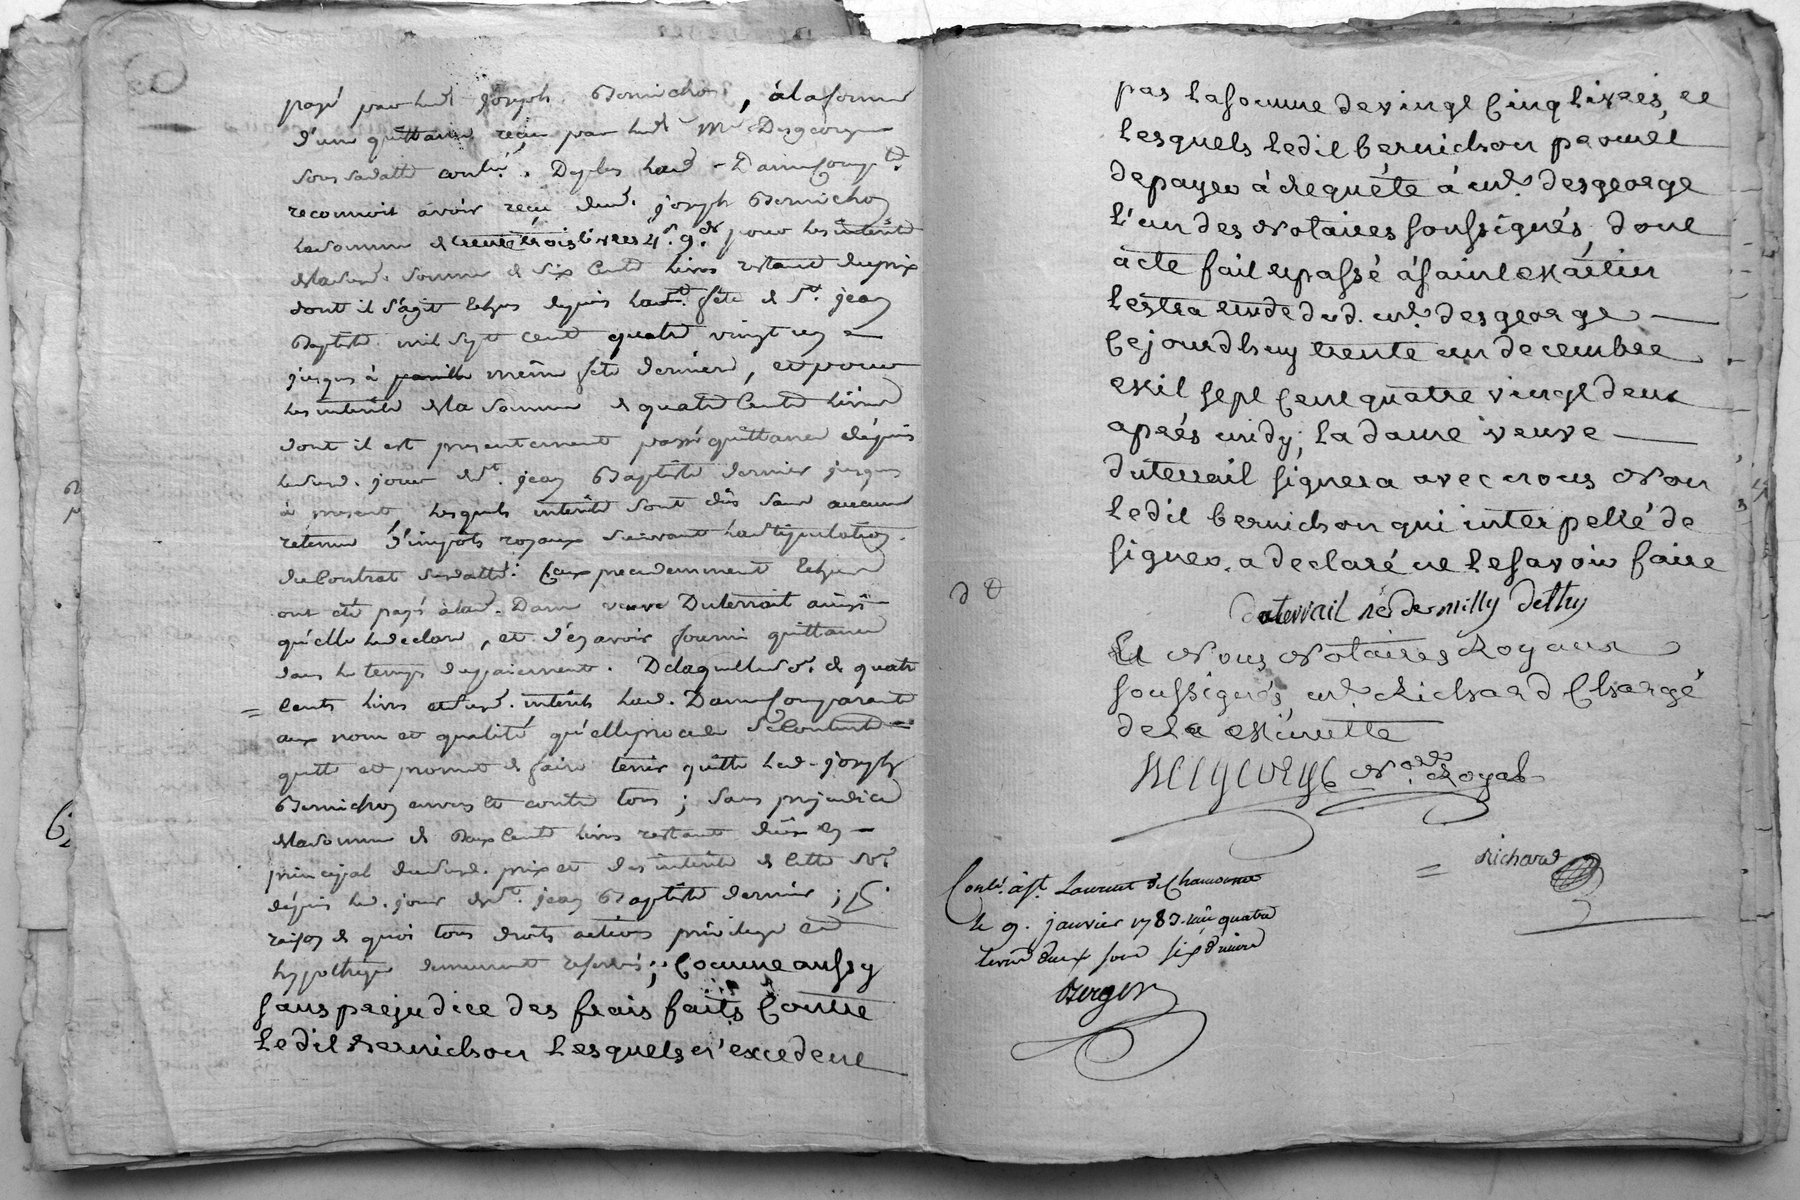 payé par led. Joseph Bernichon, à la forme
d'une quittance reçue par led. Me Desgeorge
sous sa datte contlé. De plus lad. Dame Compte.
reconnoit avoir reçu dud. joseph Bernichon
la somme de trente trois livres 4s. 9d. pour les interêts
de lad. somme de six Cents livres restant du prix
dont il s'agit echus depuis lad. fête de St. jean
Baptiste mil sept cent quatre vingt un
jusques à pareille même fête derniere, et pour
les interêts de la somme de quatre Cents livres
dont il est presentement passé quittance dépuis
led. jour de St. jean Baptiste dernier jusques
à present lesquels interêts sont dûs sans aucune
retenue d'impots royaux suivant la stipulation
du Contrat susdatté: Ceux precedemment echus
ont été payés à lad. Dame veuve Duterrail ainsi
qu'elle le declare, et d'en avoir fourni quittance
dans le temps du paiement. De laquelle so. de quatre
Cents livres et susd. interêts lad. Dame Comparante
aux nom et qualité qu'elle procede se Contente
quitte et promet de faire tenir quitte led. joseph
Bernichon envers et contre tous; sans prejudice
de la somme de Deux Cents livres restant dûe en
principal dud. prix et des interêts de Cette So.
dépuis led. jour de St. jean Baptiste dernier;
raison de quoi tous droits actions privilege et
hypotheque demeurent reservés; Comme aussy
sans prejudice des frais faits Contre
Ledit Bernichon Lesquels n'excedent
pas la somme de vingt Cinq Livres, et
Lesquels Ledit bernichon promet
de payer à requête à me. desgeorge
L'un des Notaires soussignés, dont
acte fait et passé à saint Martin
Lestra etude dud. me. desgeorge
Cejourdhuy trente un decembre
mil sept Cent quatre vingt deux
aprés midy; La dame veuve
duterrail signera avec nous Non
Ledit bernichon qui interpellé de
signer a declaré ne Le savoir faire
duterrail née de rmilly dethy
Et Nous Notaires Royaux
soussignés, me. Richard Chargé
de La Minutte
Desgeorge Nre. Royal
Richard
Contlé. à St. Laurent de Chamousset
le 9. janvier 1783. reçu quatre
livres deux sous six deniers
Berger